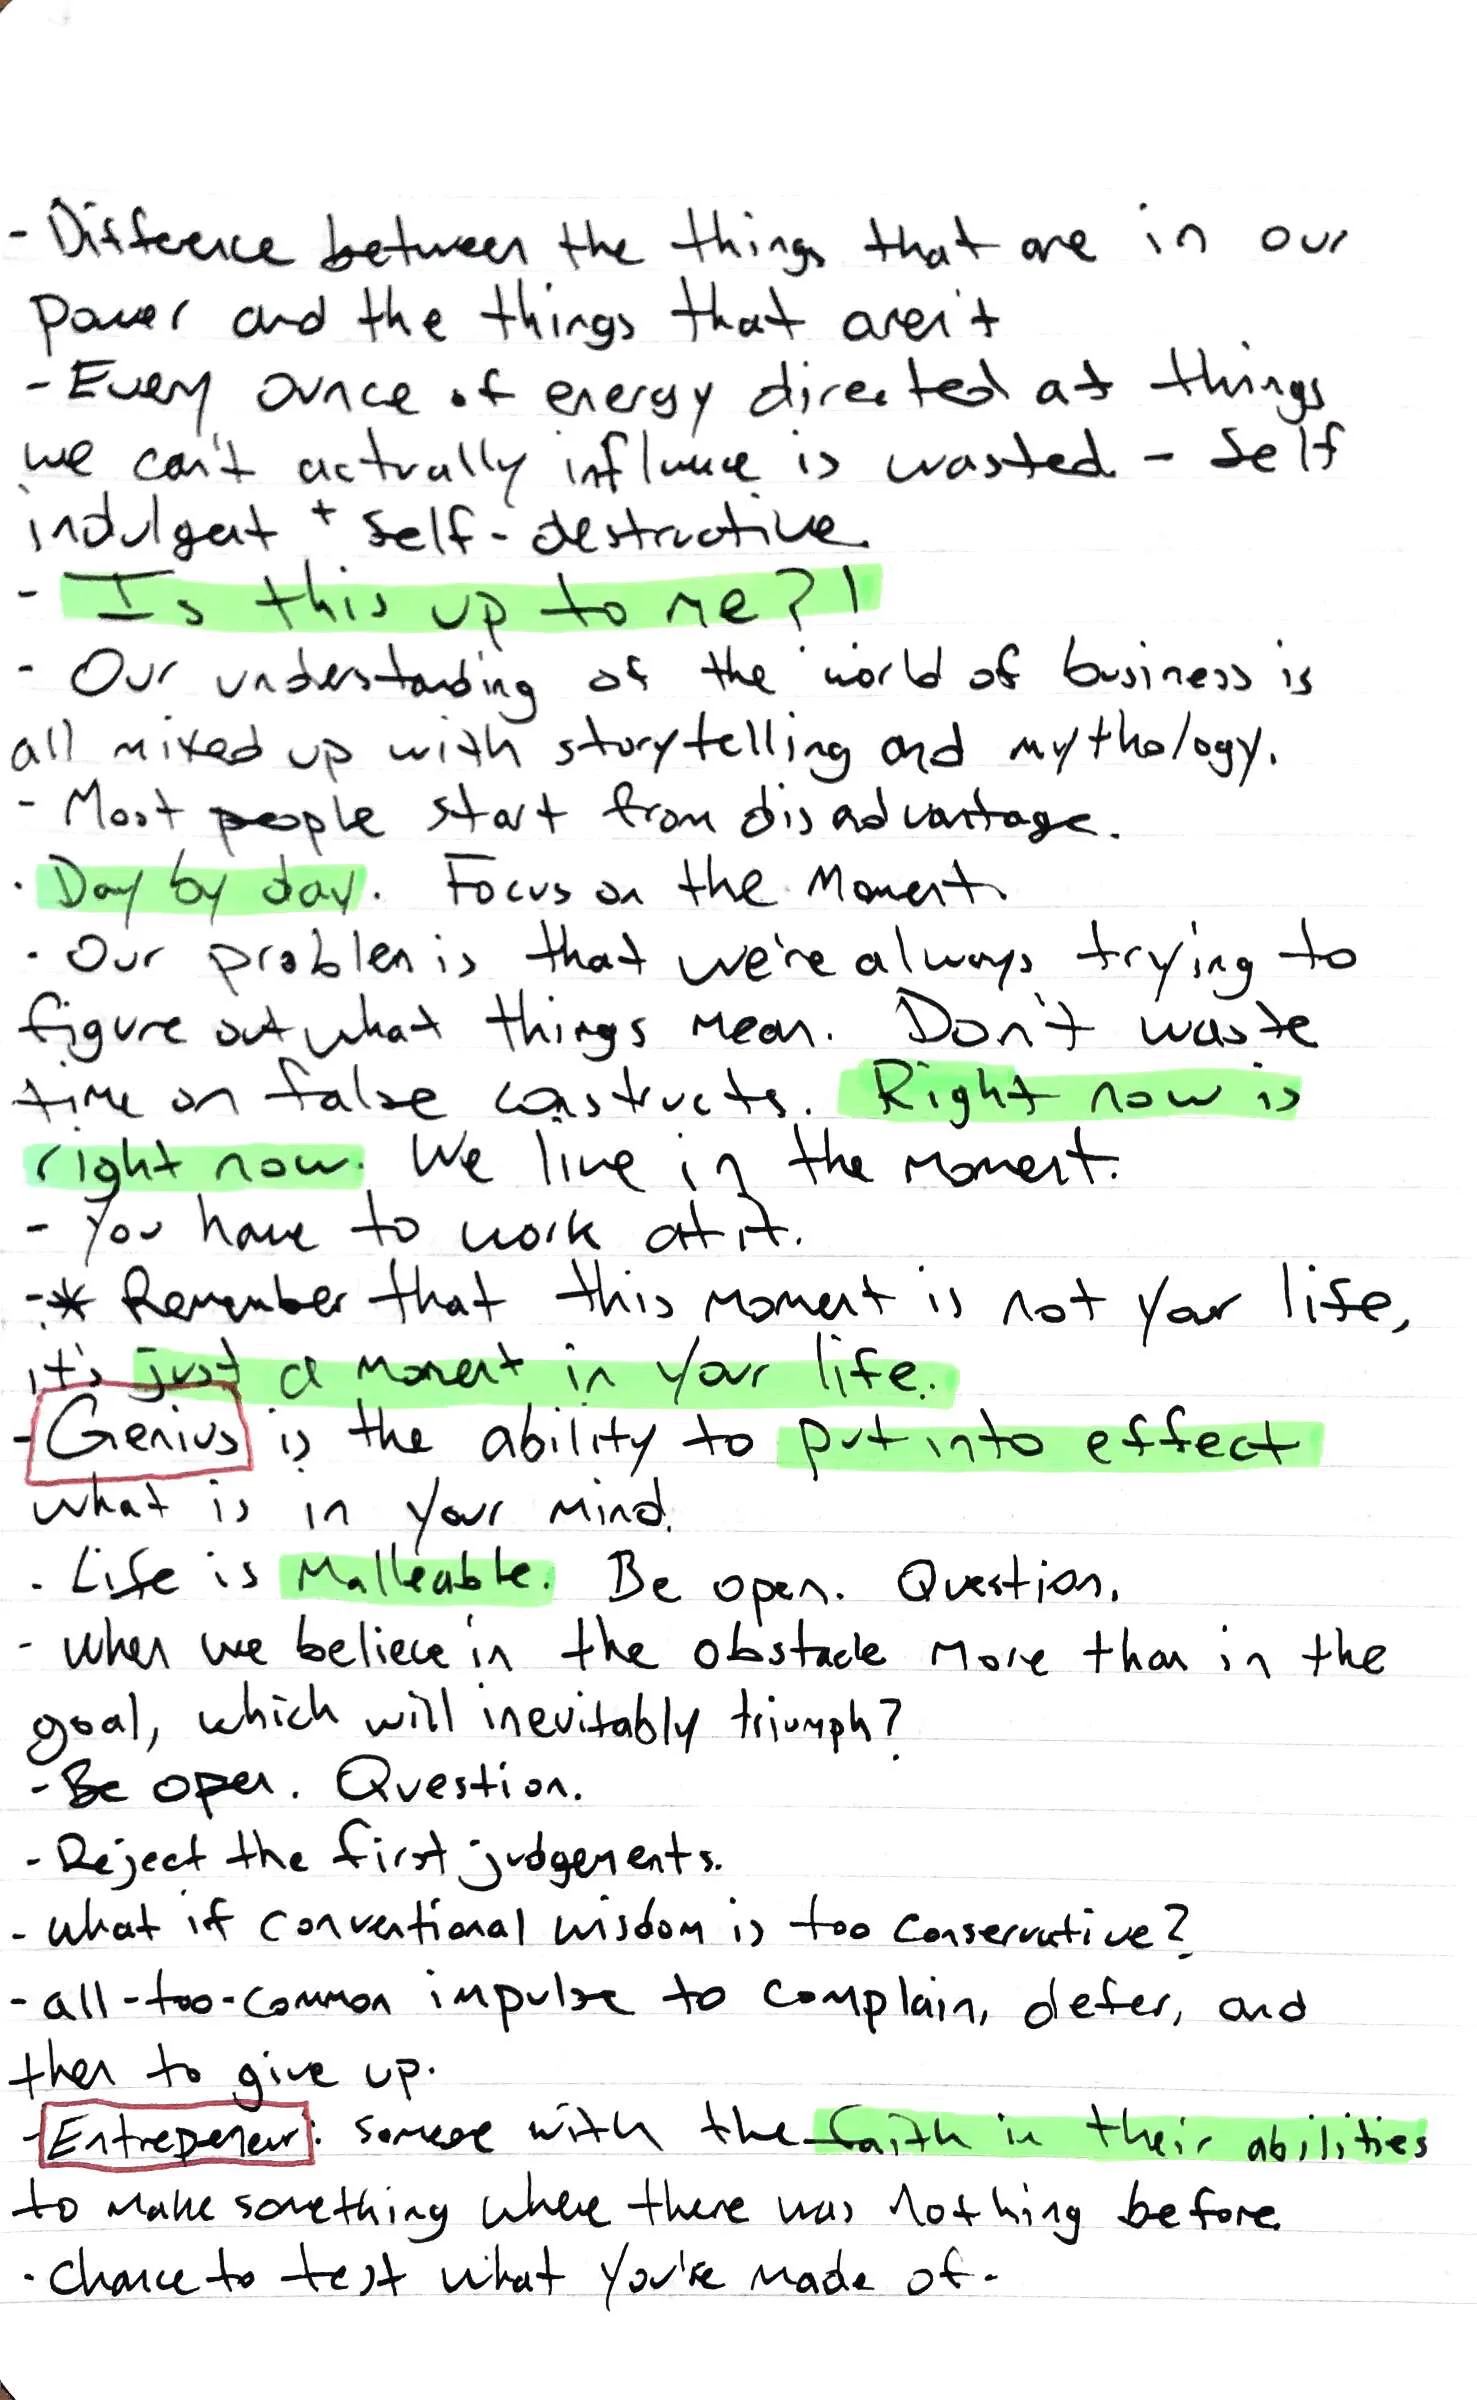 - Difference between the things that are in our
power and the things that aren't
- Every ounce of energy directed at things
we can't actually influence is wasted - Self
indulgent + Self-destructive.
- Is this up to me?!
- Our understanding of the world of business is
all mixed up with storytelling and mythology.
- Most people start from disadvantage.
. Day by day. Focus on the Moment.
. Our problem is that we're always trying to
figure out what things mean. Don't waste
time on false constructs. Right now is
right now. We live in the moment.
- You have to work at it.
-* Remember that this moment is not your life,
it's just a moment in your life.
- Genius is the ability to put into effect
what is in your mind.
. Life is Malleable. Be open. Question.
- When we believe in the obstacle more than in the
goal, which will inevitably triumph?
- Be open. Question.
- Reject the first judgements.
- What if conventional wisdom is too conservative?
- all-too-common impulse to complain, defer, and
then to give up.
- Entrepeneur: someone with the faith in their abilities
to make something where there was nothing before.
. Chance to test what you're made of.